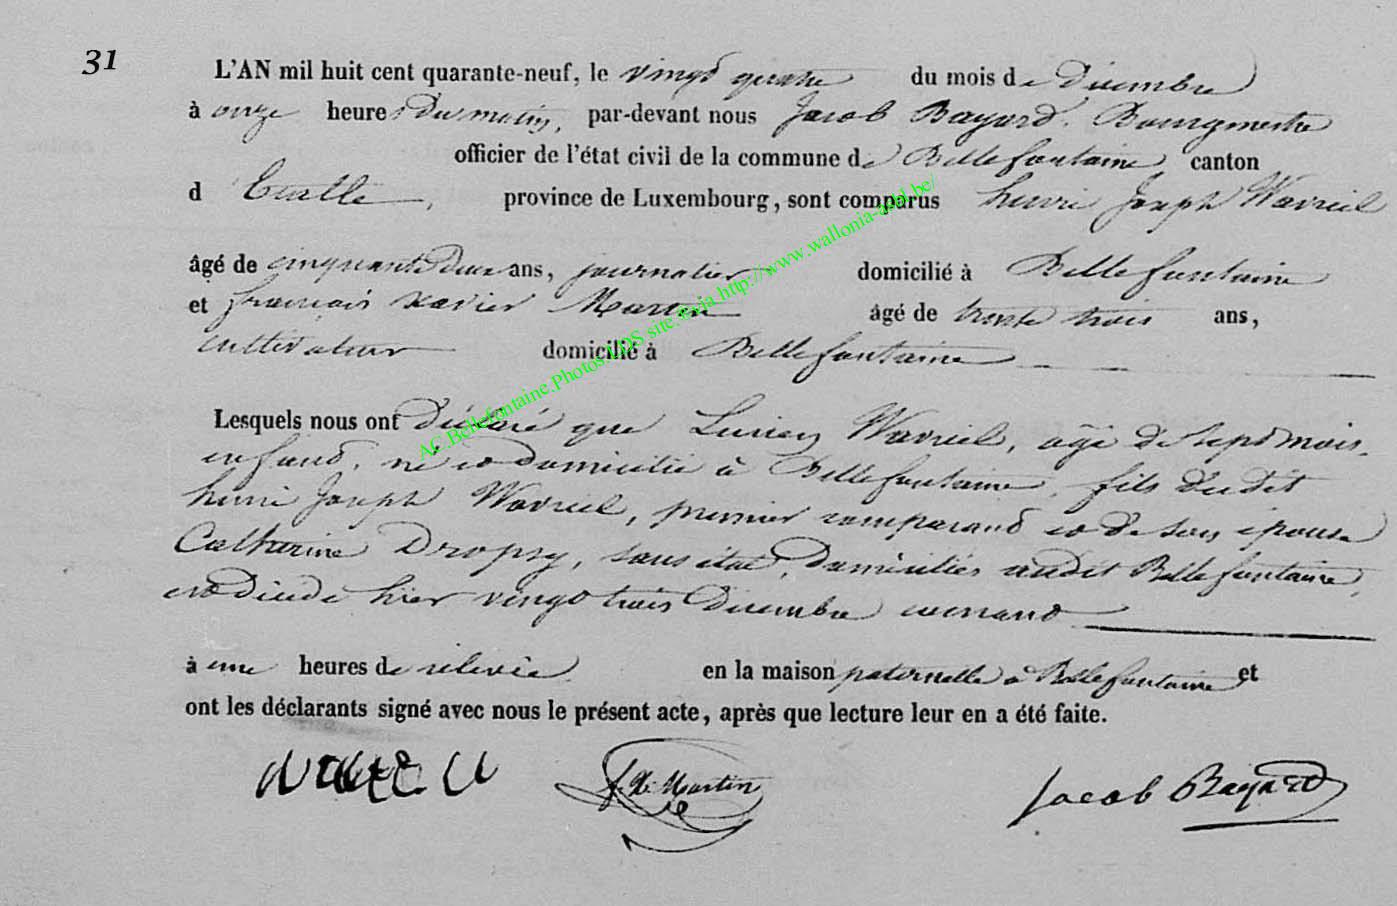 31
L'AN mil huit cent quarante-neuf, le vingt quatre du mois de Décembre
à onze heures Du matin, par-devant nous Jacob Bayard. Bourgmestre
officier de l'état civil de la commune de Bellefontaine, canton
d'Etalle, province de Luxembourg, sont comparus henri Joseph Wavreil
âgé de cinquante deux ans, journalier domicilié à Bellefontaine
et françois xavier Martin âgé de trente trois ans,
cultivateur domicilié à Bellefontaine
Lesquels nous ont Déclaré que Lucien Wavreil, âgé de sept mois.
enfant, né et domicilié à Bellefontaine, fils Dudit
henri Joseph Wavreil, premier comparant et de son épouse
Catherine Dropsy, sans état, Domiciliés audit Bellefontaine,
est Décédé hier vingt trois Décembre courant
à une heures de relevée en la maison paternelle à Bellefontaine et
ont les déclarants signé avec nous le présent acte, après que lecture leur en a été faite.
f. X. Martin Jacob Bayard
AC.Bellefontaine.Photos.LDS site.
http://www.wallonia-asbl.be/